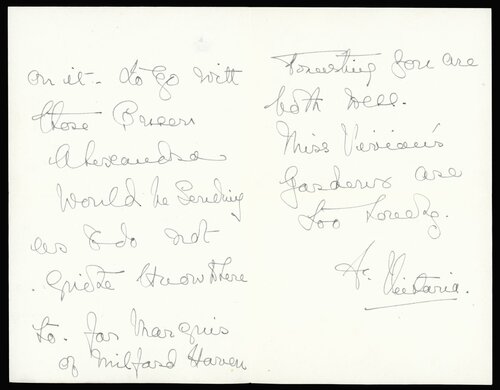 on it - to go with
those Queen
Alexandra
would be sending
as I do not
quite know there
to. for Marquis
of Milford Haven
Trusting you are
both well.
Miss Vivian's
Gardens are
too lovely.
Victoria.